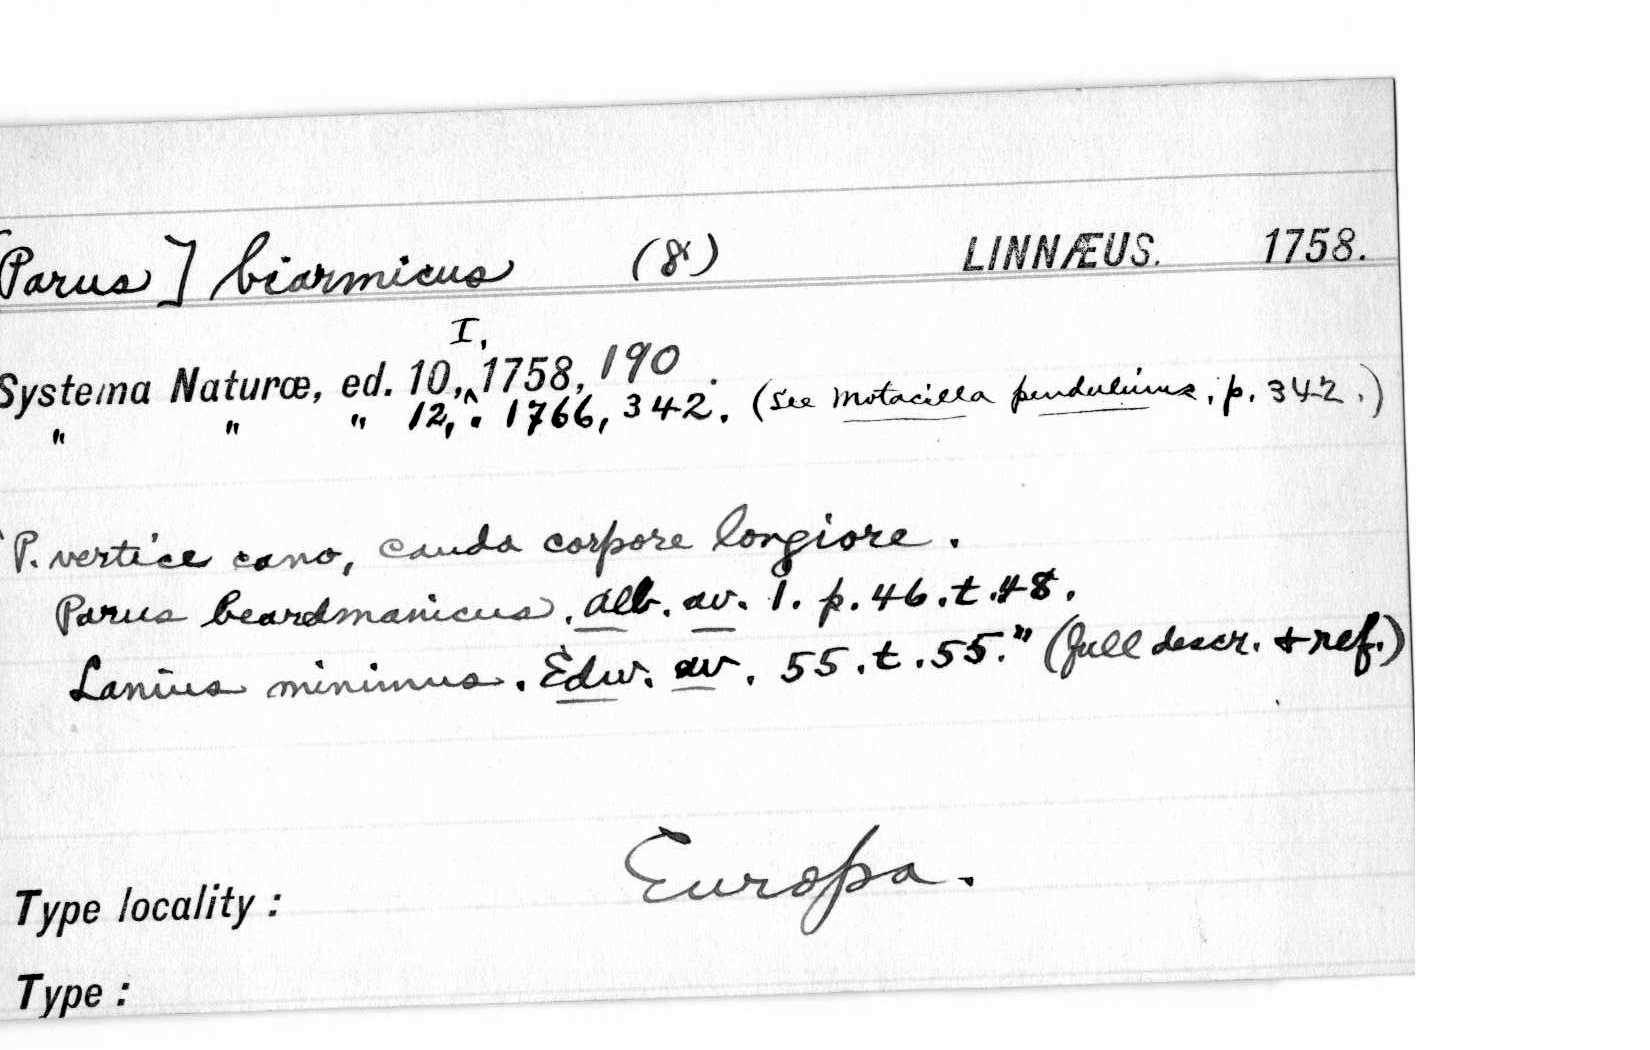 [Parus] biarmicus (8) LINNÆUS. 1758.
I,
Systema Naturæ, ed. 10,‸ 1758, 190.
" " " 12, " 1766, 342. (See Motacilla pendulinus, p. 342.)
"P. vertice cano, cauda corpore longiore.
Parus beardmanicus. Alb. av. 1. p. 46. t. 48.
Lanius minimus. Edw. av. 55. t. 55." (full descr. + ref.)
Type locality: Europa.
Type: